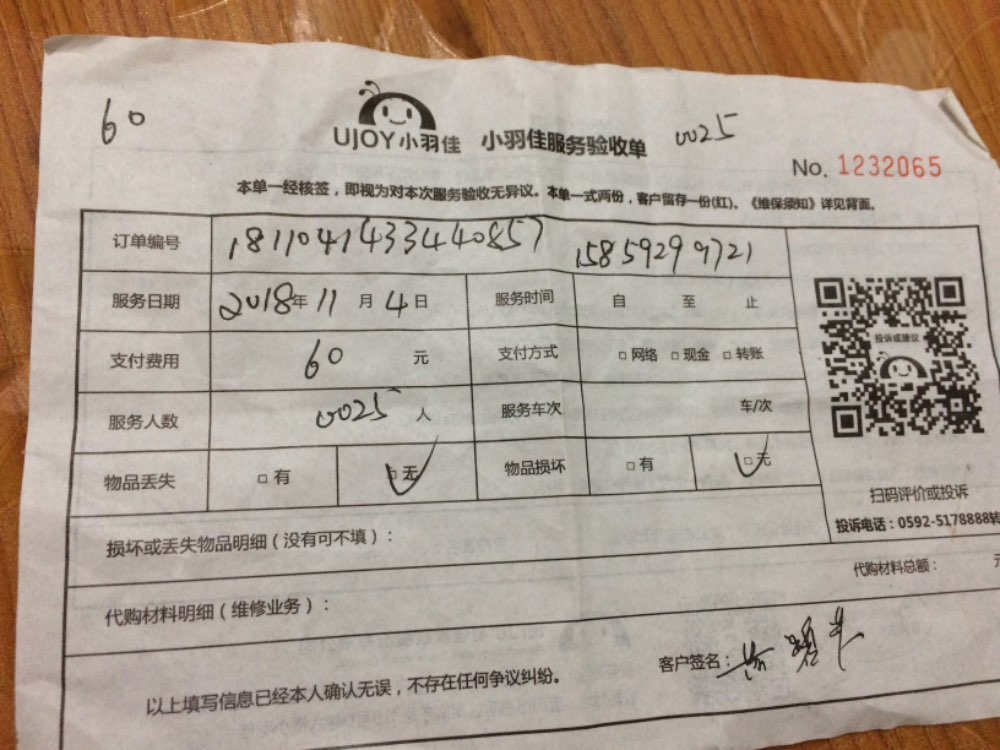 60
UJOY小羽佳 小羽佳服务验收单 0025
No. 1232065
本单一经核签，即视为对本次服务验收无异议。本单一式两份，客户留存一份(红)。《维保须知》详见背面。
订单编号 1811041433440857 15859299721
服务日期 2018年11月4日 服务时间 自 至 止
支付费用 60 元 支付方式 □网络 □现金 □转账
投诉或建议
服务人数 0025 人 服务车次 车/次
物品丢失 □有 □无 物品损坏 □有 □无
扫码评价或投诉
投诉电话：0592-5178888转
损坏或丢失物品明细（没有可不填）：
代购材料总额： 元
代购材料明细（维修业务）：
客户签名：
以上填写信息已经本人确认无误，不存在任何争议纠纷。